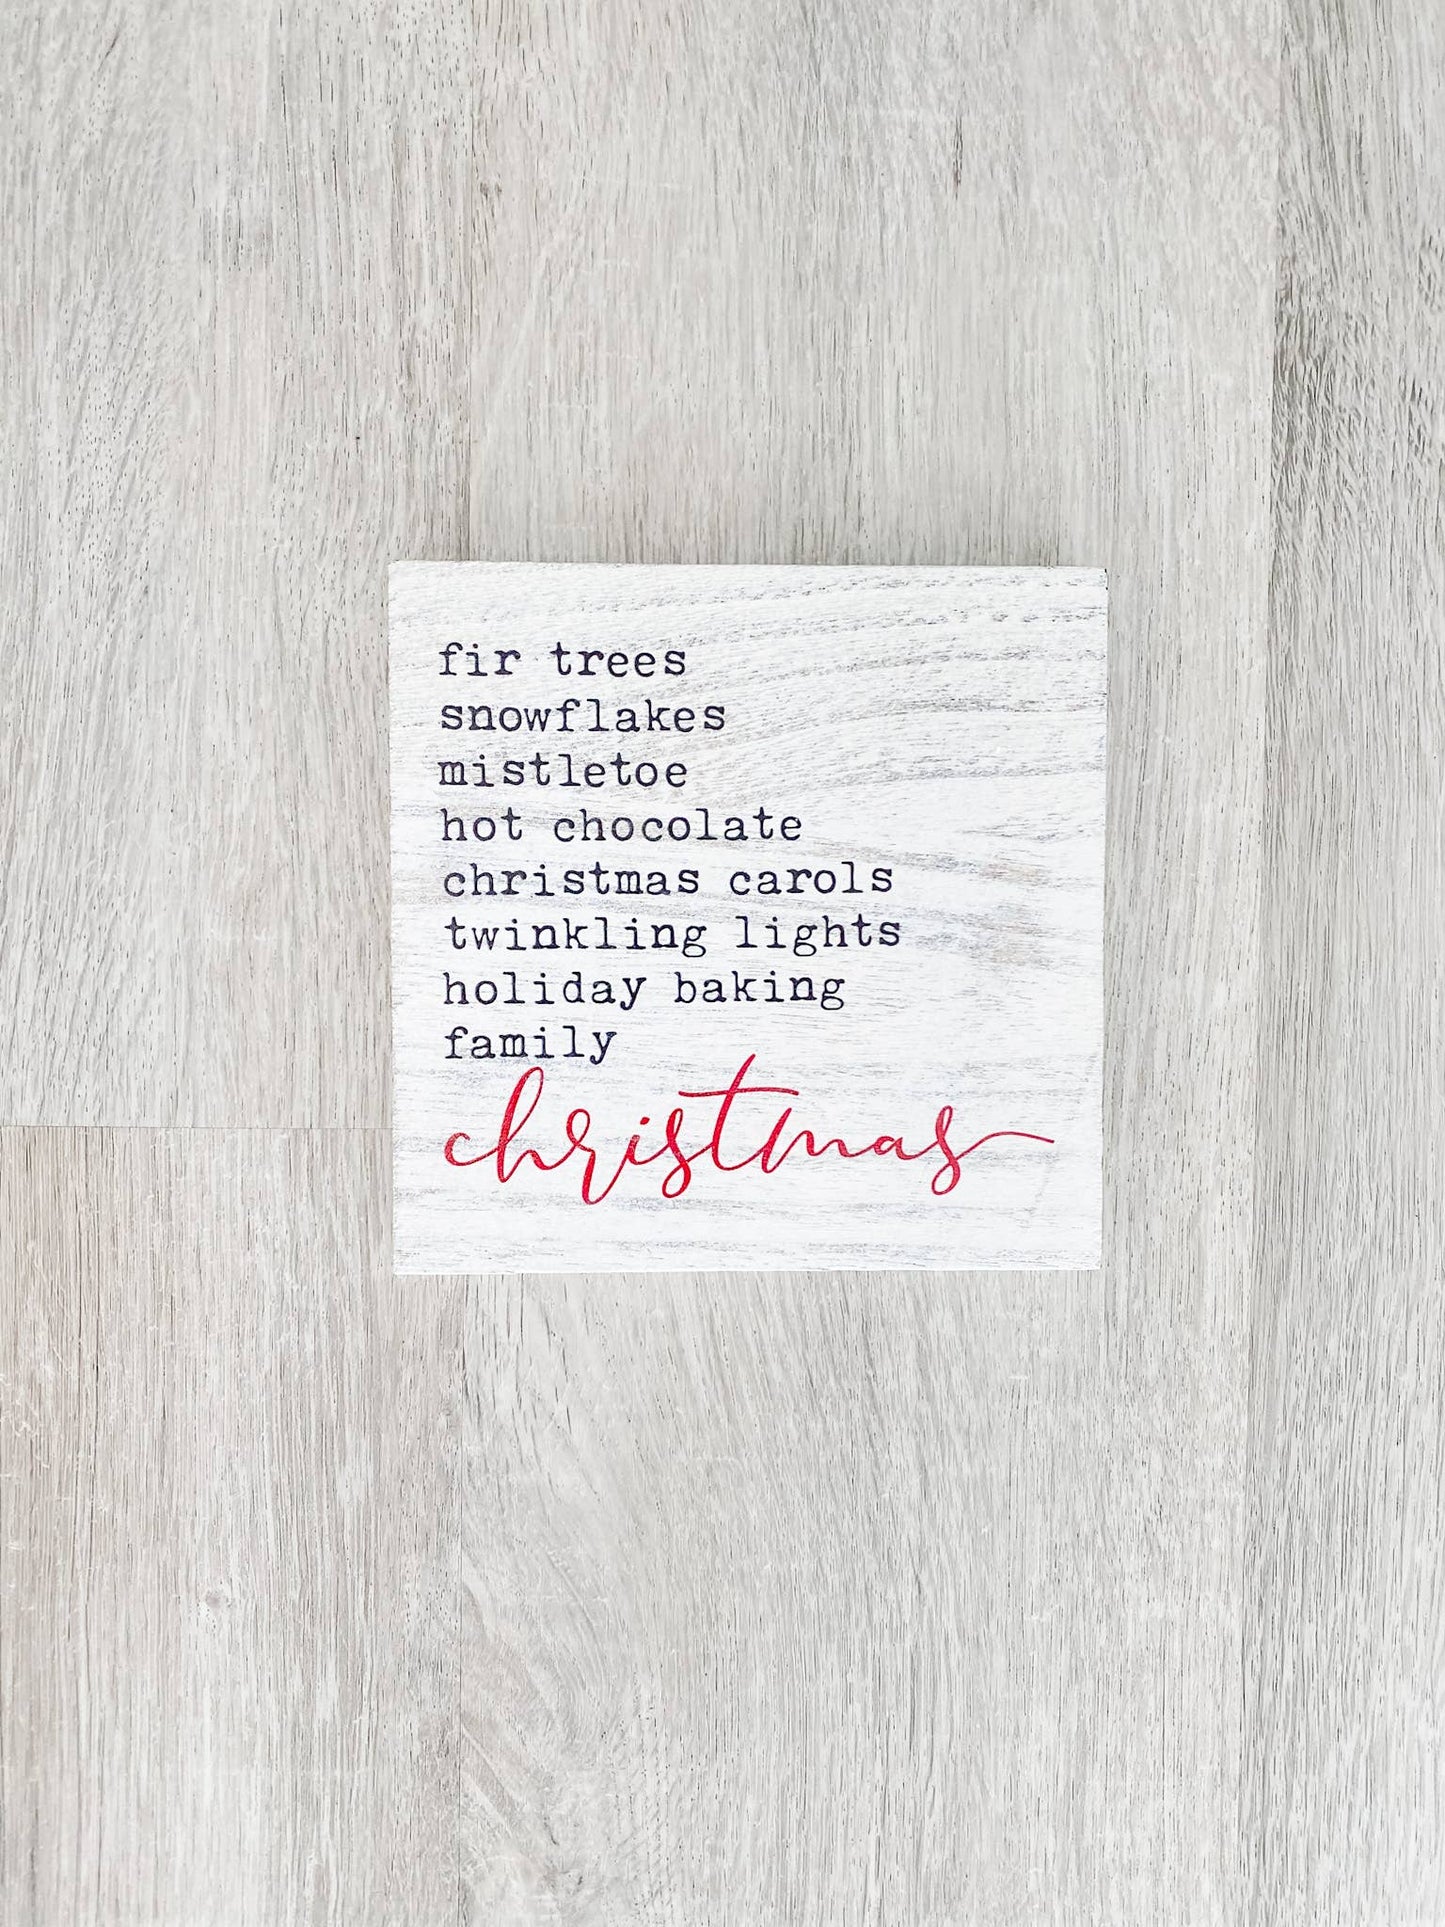 fir trees
snowflakes
mistletoe
hot chocolate
christmas carols
twinkling lights
holiday baking
family
christmas